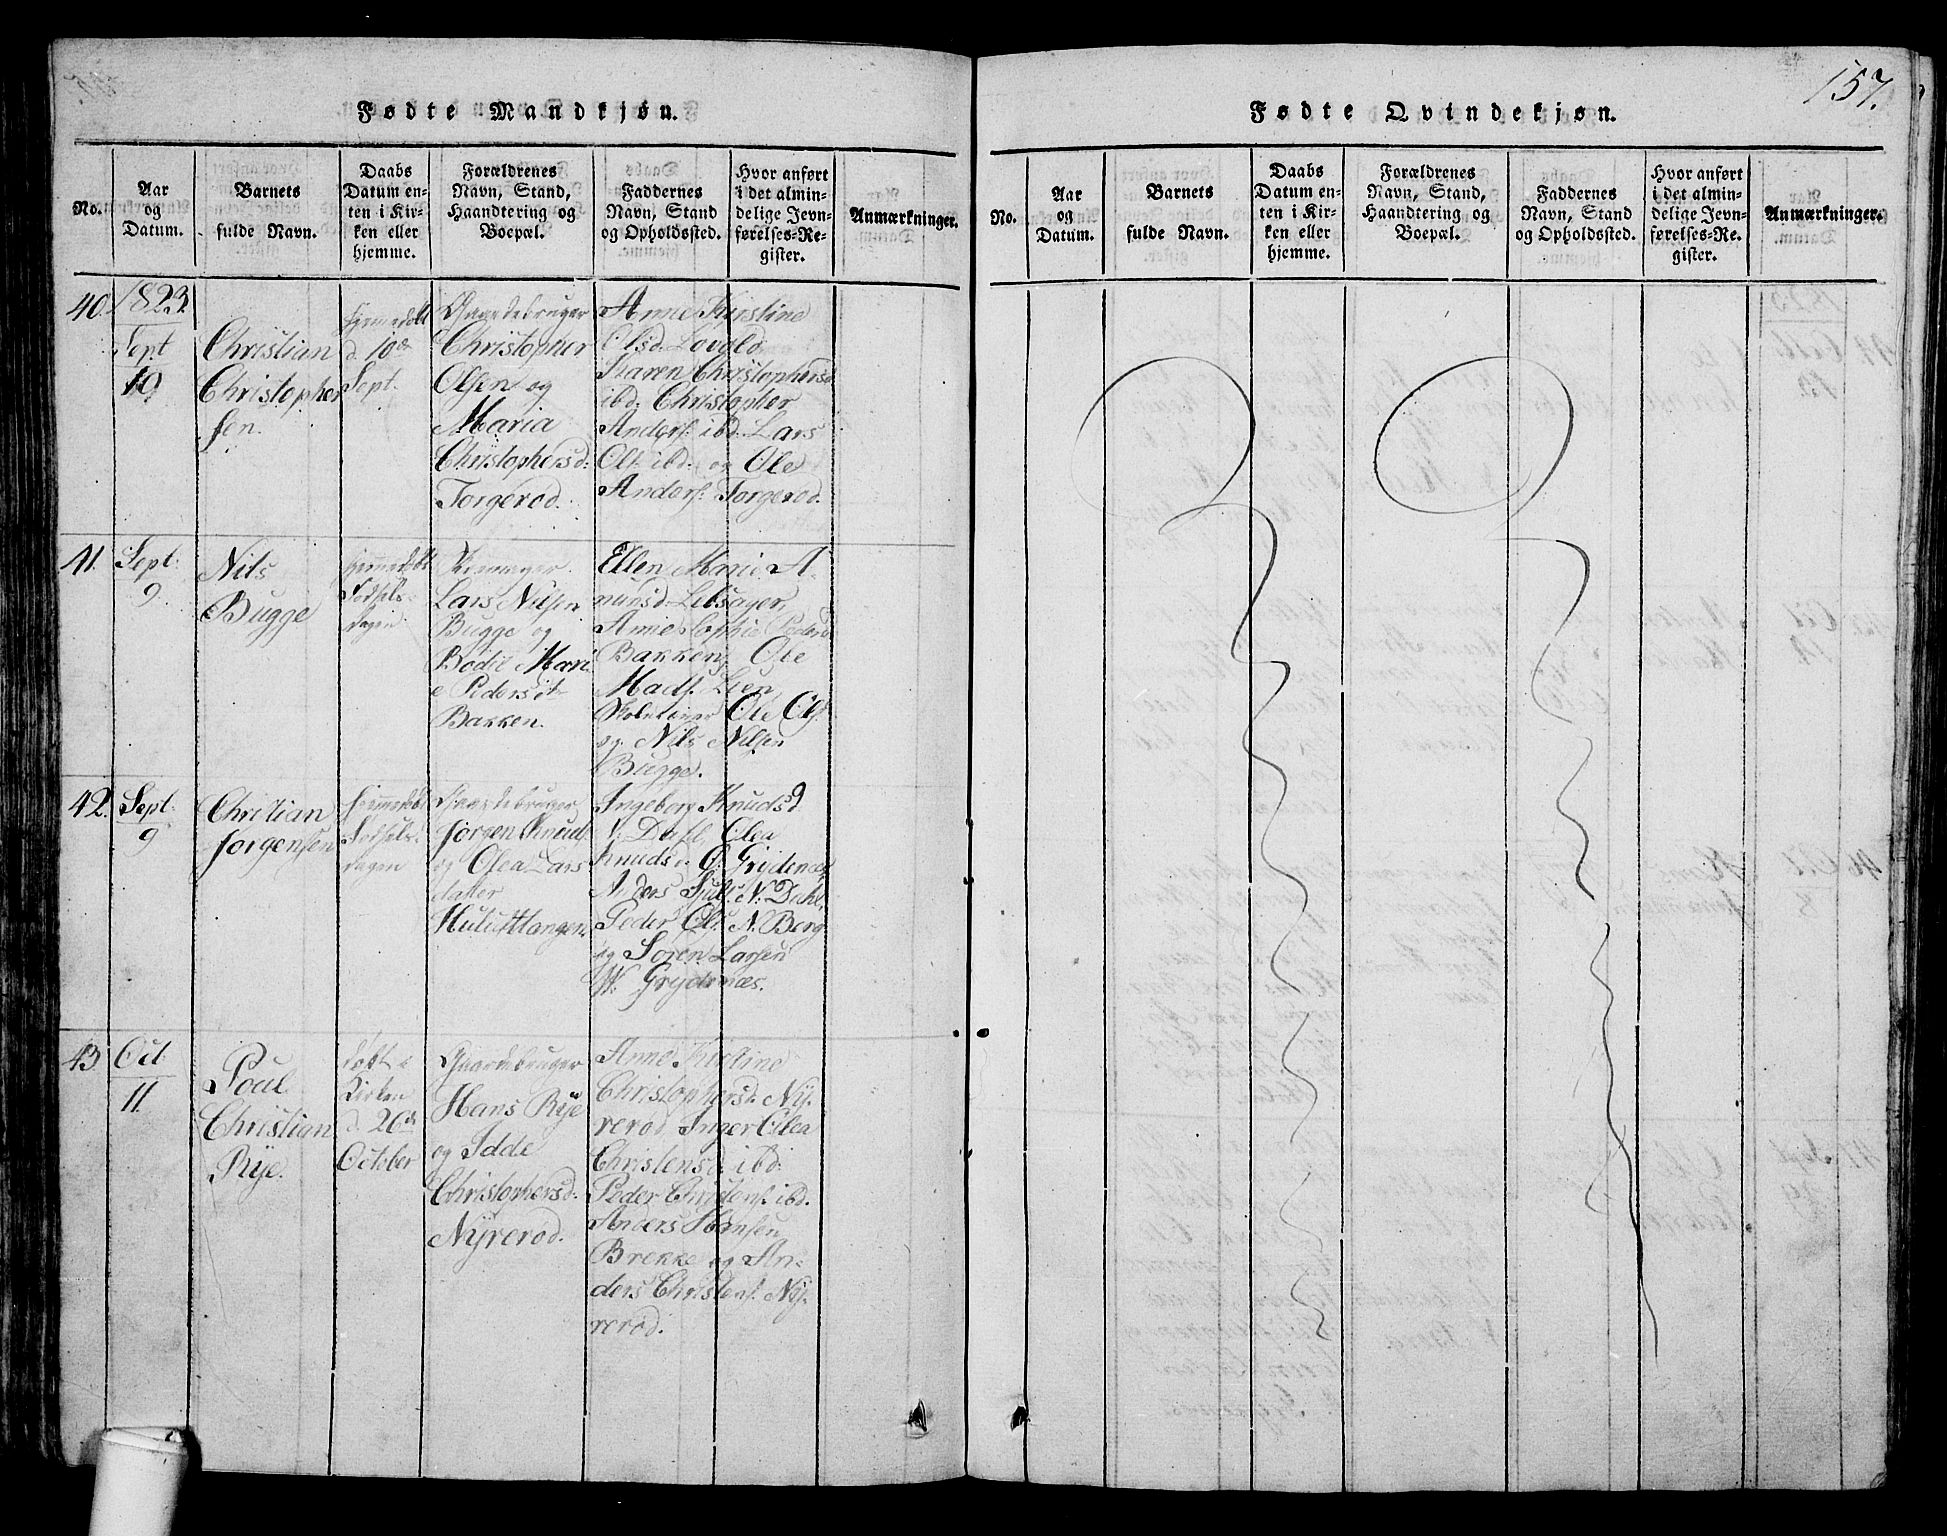 157.
Fødte Mandkjøn.
No.
Aar
og
Datum.
Barnets
fulde Navn.
Daabs
Datum en-
ten i Kir-
ken eller
hjemme.
Forældrenes
Navn, Stand,
Haandtering og
Boepæl.
Faddernes
Navn, Stand
og Opholdssted.
Hvor anført
i det almin-
delige Jevn-
førelses-Re-
gister.
Anmærkninger.
40.
1823
Sept
19
Christian
Christopher
sen.
hjemedøbt
d. 10de
Sept.
Gaardebruger
Christopher
Olsen og
Maria
Christophersd:
Torgerød.
Anne Kirstine
Olsd. Lovald
Karen Christophersd
ibd. Christopher
Anders: ibd. Lars
Ols: ibd. og Ole
Anders: Torgerød.
41.
Sept:
9
Nils
Bugge
hjemedøbt
Fødsels-
dagen
Lars Nilsen
Bugge og
Bodil Mari
e Pedersd:
Bakken.
Ellen Marie A-
Anne Sophie Peders
Bakken, Ole
Mads. Lien
Ole Ols.
og Nils Nilsen
Bugge.
42.
Sept:
9
Christian
Jørgensen
hjemedøbt
Fødsels-
dagen
Gaardebruger
Jørgen Knuds:
og Olea Lars
datter
Ingeborg Knudsd
N: Dahl Olea
Knudsd. G. Grydenæs,
Anders N: Dahl,
Peder Ols: N. Berg
og Søren Larsen
N. Grydenæs.
43
Oct
11.
Poul
Christian
Rye.
døbt i
Kirken
d. 26de
October
Gaardebruger
Hans Rye
og Idde
Christophersd:
Nyrerød.
Anne Kirstine
Christophersd: Ny-
rerød, Inger Olea
Christensd: ibd:
Peder Christens: ibd.
Anders Hansen
Brekke og An-
ders Christens: Ny-
rerød.
Fødte Qvindekjøn.
No.
Aar
og
Datum.
Barnets
fulde Navn.
Daabs
Datum en-
ten i Kir-
ken eller
hjemme.
Forældrenes
Navn, Stand,
Haandtering og
Boepæl.
Faddernes
Navn, Stand
og Opholdssted.
Hvor anført
i det almin-
delige Jevn-
førelses-Re-
gister.
Anmærkninger.